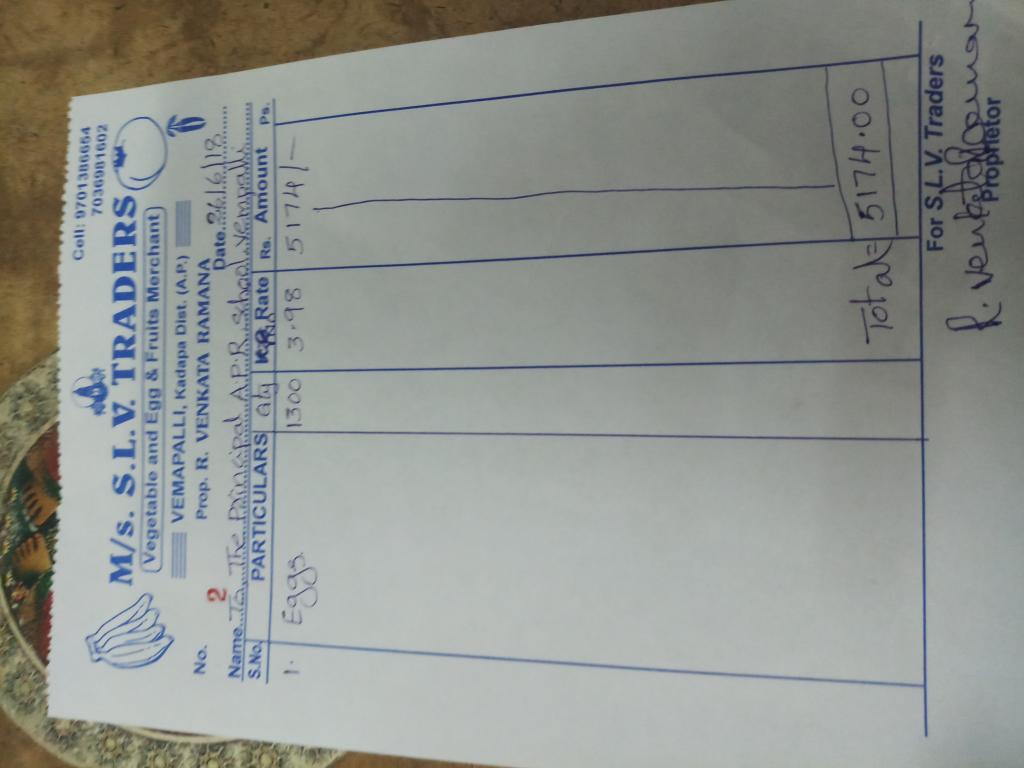 Cell: 9701386664
7036991602
M/s. S.L.V. TRADERS
Vegetable and Egg & Fruits Merchant
VEMAPALLI, Kadapa Dist. (A.P.)
Prop. R. VENKATA RAMANA
No. 2 Date 26/6/18
Name To The Principal A.P.R School Vempalli
S.No. PARTICULARS Qty Rate Rs. Amount Ps.
1. Eggs 1300 3.98 5174/-
Total = 5174.00
For S.L.V. Traders
R. Venkataramana
Proprietor